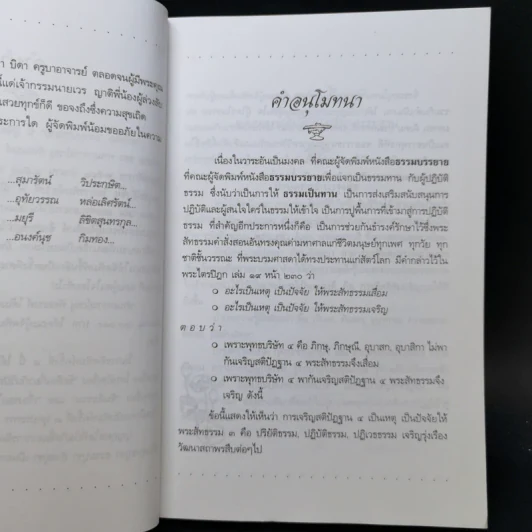 า บิดา ครูบาอาจารย์ ตลอดจนผู้มีพระคุณ
แด่เจ้ากรรมนายเวร ญาติพี่น้องผู้ล่วงลับ
เสวยทุกข์ก็ดี ขอจงถึงซึ่งความสุขเถิด
ระการใด ผู้จัดพิมพ์น้อมขออภัยในความ
...สุมารัตน์ วีประกษิต...
...อุทัยวรรณ หล่อเลิศรัตน์...
...มยุรี ลิขิตสุนทรกุล...
...อนงค์นุช กิมทอง...
คำอนุโมทนา
เนื่องในวาระอันเป็นมงคล ที่คณะผู้จัดพิมพ์หนังสือธรรมบรรยาย
ที่คณะผู้จัดพิมพ์หนังสือธรรมบรรยายเพื่อแจกเป็นธรรมทาน กับผู้ปฏิบัติ
ธรรม ซึ่งนับว่าเป็นการให้ ธรรมเป็นทาน เป็นการส่งเสริมสนับสนุนการ
ปฏิบัติและผู้สนใจใคร่ในธรรมให้เข้าใจ เป็นการปูพื้นการที่เข้ามาสู่การปฏิบัติ
ธรรม ที่สำคัญอีกประการหนึ่งก็คือ เป็นการช่วยกันธำรงค์รักษาไว้ซึ่งพระ
สัทธรรมคำสั่งสอนอันทรงคุณค่ามหาศาลแก่ชีวิตมนุษย์ทุกเพศ ทุกวัย ทุก
ชาติชั้นวรรณะ ที่พระบรมศาสดาได้ทรงประทานแก่สัตว์โลก มีคำกล่าวไว้ใน
พระไตรปิฎก เล่ม ๑๙ หน้า ๒๓๐ ว่า
อะไรเป็นเหตุ เป็นปัจจัย ให้พระสัทธรรมเสื่อม
อะไรเป็นเหตุ เป็นปัจจัย ให้พระสัทธรรมเจริญ
ตอบว่า
เพราะพุทธบริษัท ๔ คือ ภิกษุ, ภิกษุณี, อุบาสก, อุบาสิกา ไม่พา
กันเจริญสติปัฏฐาน ๔ พระสัทธรรมจึงเสื่อม
เพราะพุทธบริษัท ๔ พากันเจริญสติปัฏฐาน ๔ พระสัทธรรมจึง
เจริญ ดังนี้
ข้อนี้แสดงให้เห็นว่า การเจริญสติปัฏฐาน ๔ เป็นเหตุ เป็นปัจจัยให้
พระสัทธรรม ๓ คือ ปริยัติธรรม, ปฏิบัติธรรม, ปฏิเวธธรรม เจริญรุ่งเรือง
วัฒนาสถาพรสืบต่อๆไป